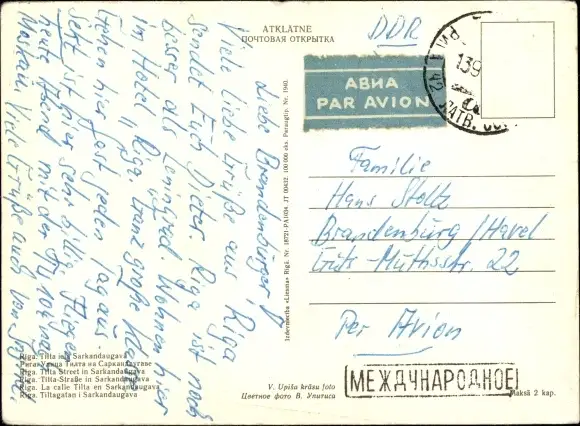 ATKLĀTNE
ПОЧТОВАЯ ОТКРЫТКА
DDR
АВИА
PAR AVION
РИГА 42
139
ЛАТВ. ССР
Liebe Brandenburger!
Viele liebe Grüße aus Riga
sendet Euch Dieter. Riga ist noch
besser als Leningrad. Wohnen hier
im Hotel Riga. Ganz große Klasse
Gehen hier fast jeden Tag aus.
Sekt ist hier sehr billig. Fliegen
heute Abend mit der nach
Viele Grüße auch von
Familie
Hans Stolz
Brandenburg / Havel
22
Per Avion
Izdevniecība «Liesma» Rīgā. Nr. 18721-PA1034. JT 09432. 100 000 eks. Paraugtip. Nr. 1940.
Rīga. Tilta iela Sarkandaugavā
Рига. Улица Тилта на Саркандаугаве
Riga. Tilta Street in Sarkandaugava
Riga. Tilta-Straße in Sarkandaugava
Riga. La calle Tilta en Sarkandaugava
Riga. Tiltagatan i Sarkandaugava
V. Upīša krāsu foto
Цветное фото В. Упитиса
МЕЖДУНАРОДНОЕ
Maksā 2 kap.